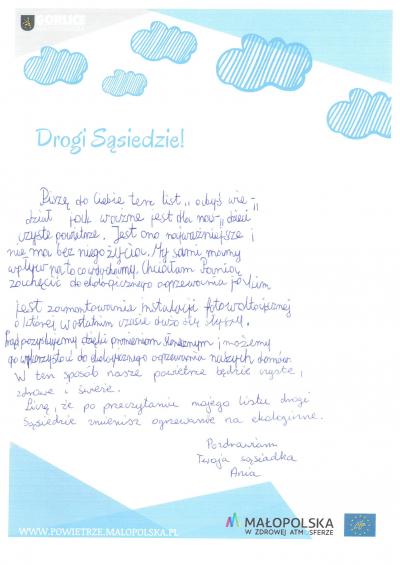 GORLICE
Drogi Sąsiedzie!
Piszę do Ciebie ten list, abyś wie-
dział jak ważne jest dla nas dzieci
czyste powietrze. Jest ono najważniejsze i
nie ma bez niego życia. My sami mamy
wpływ na to co wdychamy. Chciałam Pana
zachęcić do ekologicznego ogrzewania jakim
jest zamontowanie instalacji fotowoltaicznej
o której w ostatnim czasie dużo się słyszy.
Prąd pozyskujemy dzięki promieniom słonecznym i możemy
go wykorzystać do ekologicznego ogrzewania naszych domów.
W ten sposób nasze powietrze będzie czyste,
zdrowe i świeże.
Liczę, że po przeczytaniu mojego listu drogi
Sąsiedzie zmienisz ogrzewanie na ekologiczne.
Pozdrawiam
Twoja sąsiadka
Ania
WWW.POWIETRZE.MALOPOLSKA.PL
MAŁOPOLSKA
W ZDROWEJ ATMOSFERZE